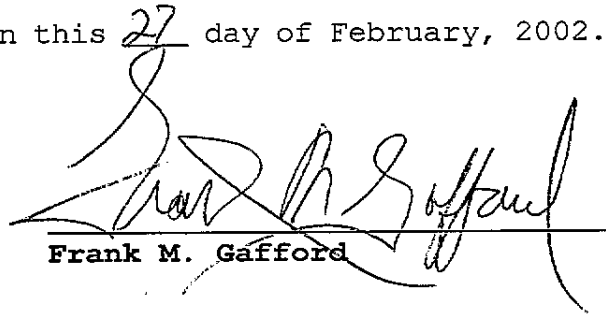 n this 27 day of February, 2002.
Frank M. Gafford
Frank M. Gafford